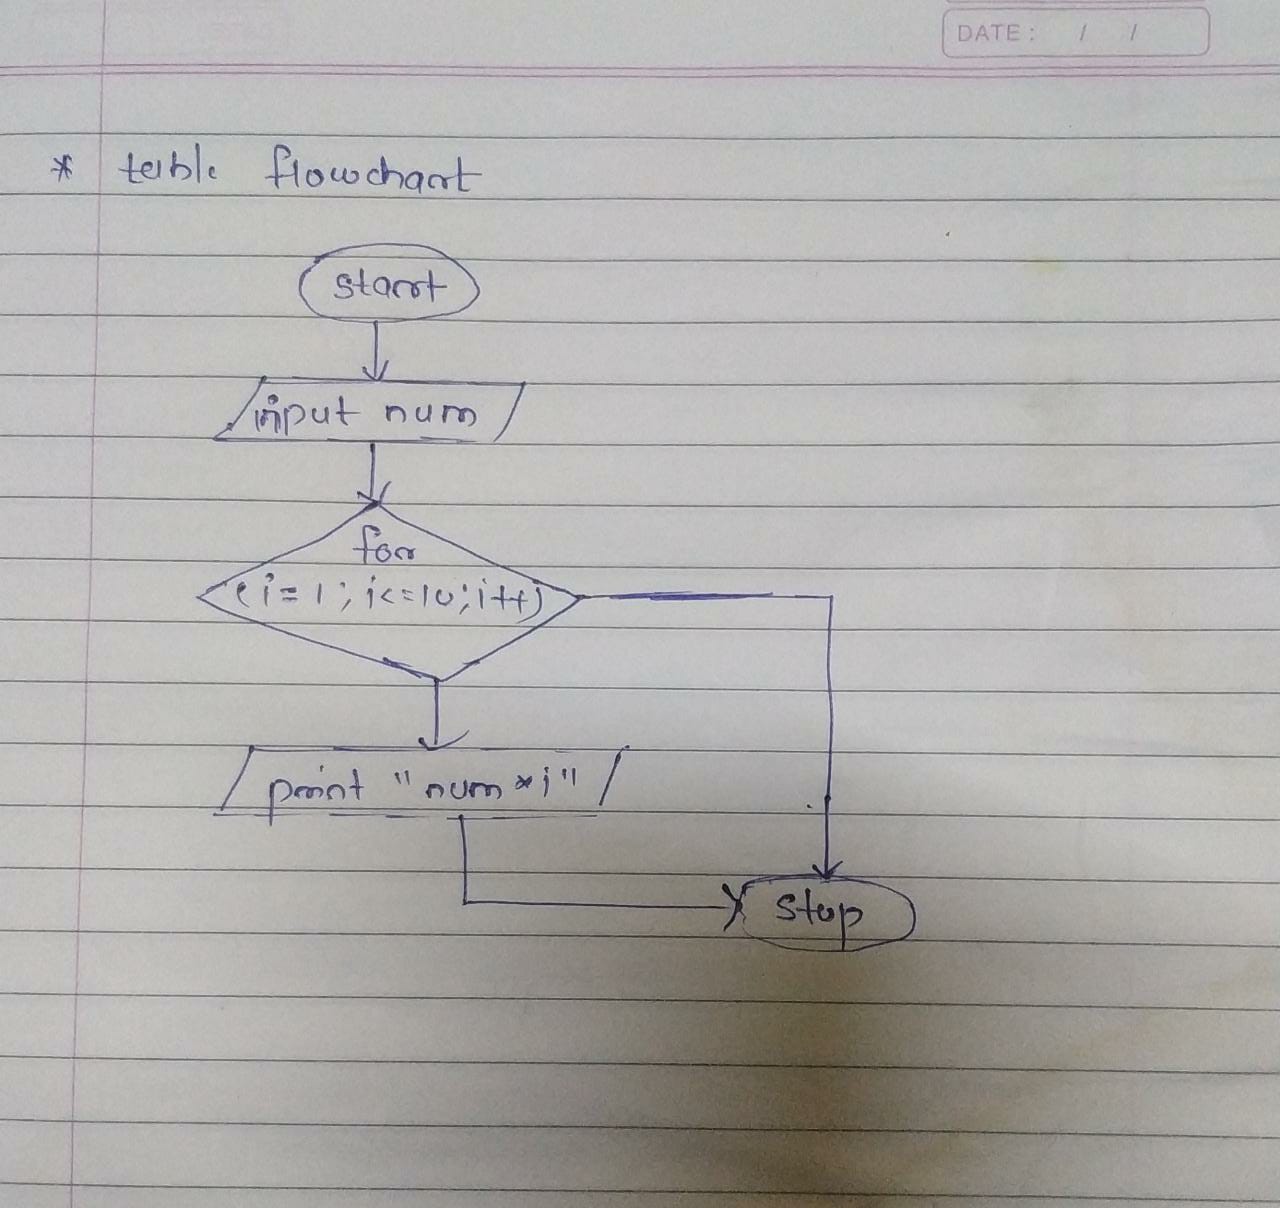 DATE: / /
* table flowchart
Start
input num
for
(i=1; i<=10; i++)
print "num*i"
Stop